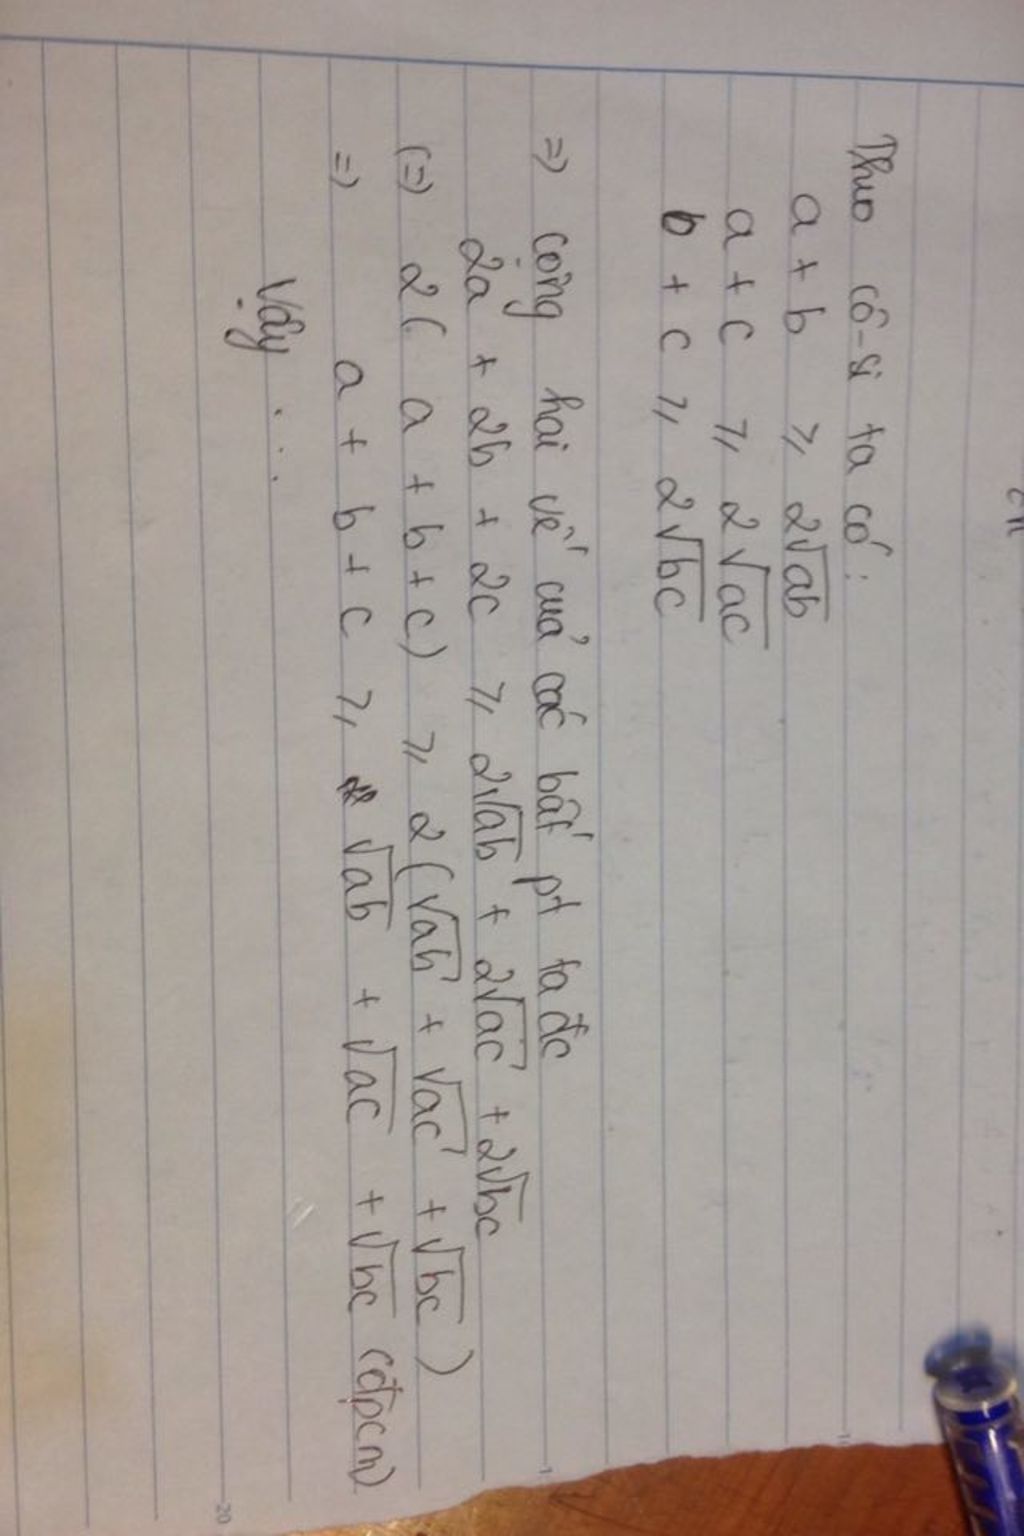 Theo cô-si ta có:
a + b ≥ 2√ab
a + c ≥ 2√ac
b + c ≥ 2√bc
=> cộng hai vế của các bất pt ta đc
2a + 2b + 2c ≥ 2√ab + 2√ac + 2√bc
(=) 2( a + b + c) ≥ 2(√ab + √ac + √bc)
=> a + b + c ≥ √ab + √ac + √bc (đpcm)
Vậy ...
20